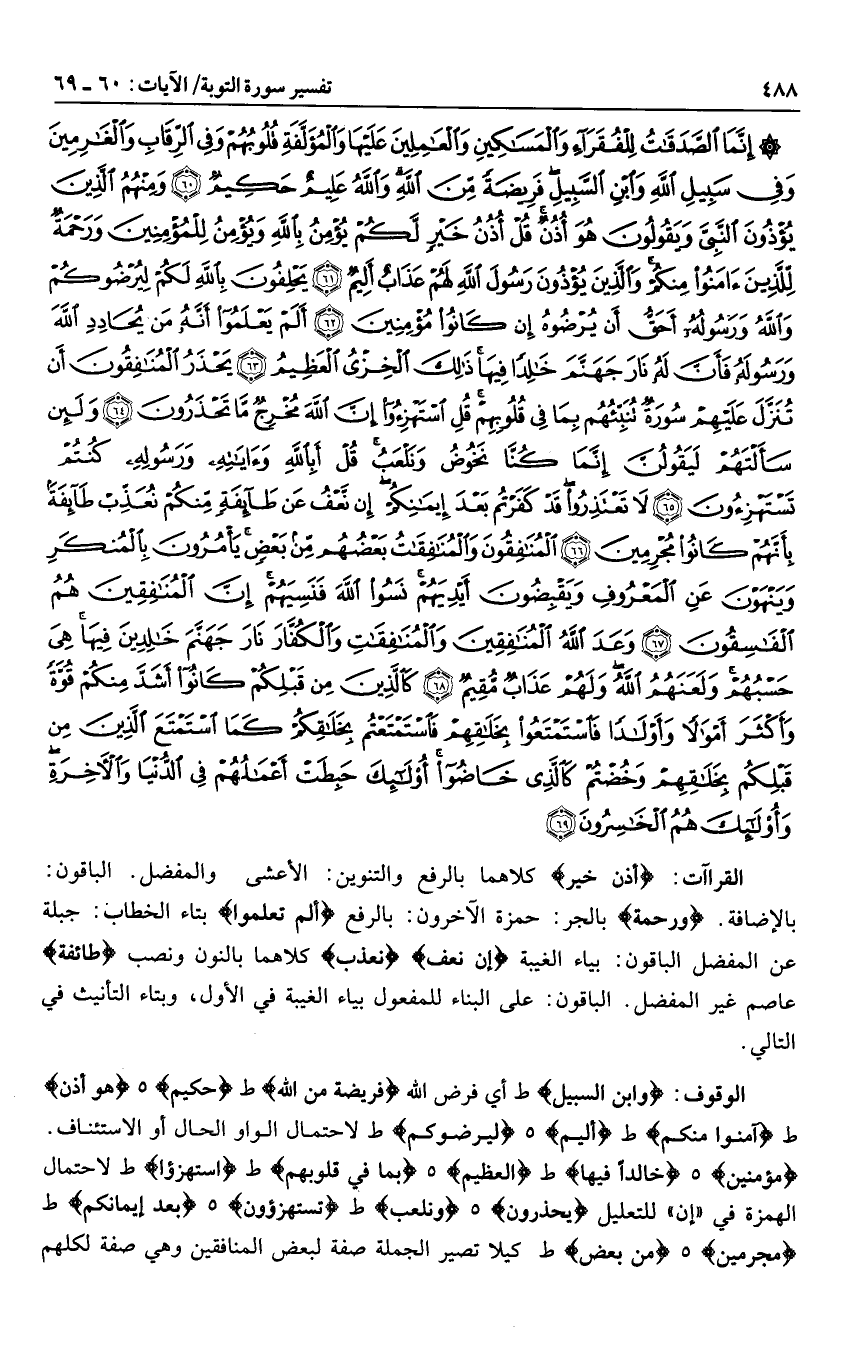 ٤٨٨ تفسير سورة التوبة/ الآيات: ٦٠ ـ ٦٩
۞ إِنَّمَا ٱلصَّدَقَٰتُ لِلْفُقَرَآءِ وَٱلْمَسَٰكِينِ وَٱلْعَٰمِلِينَ عَلَيْهَا وَٱلْمُؤَلَّفَةِ قُلُوبُهُمْ وَفِى ٱلرِّقَابِ وَٱلْغَٰرِمِينَ
وَفِى سَبِيلِ ٱللَّهِ وَٱبْنِ ٱلسَّبِيلِۖ فَرِيضَةً مِّنَ ٱللَّهِۗ وَٱللَّهُ عَلِيمٌ حَكِيمٌ ﴿٦٠﴾ وَمِنْهُمُ ٱلَّذِينَ
يُؤْذُونَ ٱلنَّبِىَّ وَيَقُولُونَ هُوَ أُذُنٌۚ قُلْ أُذُنُ خَيْرٍ لَّكُمْ يُؤْمِنُ بِٱللَّهِ وَيُؤْمِنُ لِلْمُؤْمِنِينَ وَرَحْمَةٌ
لِّلَّذِينَ ءَامَنُوا۟ مِنكُمْۚ وَٱلَّذِينَ يُؤْذُونَ رَسُولَ ٱللَّهِ لَهُمْ عَذَابٌ أَلِيمٌ ﴿٦١﴾ يَحْلِفُونَ بِٱللَّهِ لَكُمْ لِيُرْضُوكُمْ
وَٱللَّهُ وَرَسُولُهُۥٓ أَحَقُّ أَن يُرْضُوهُ إِن كَانُوا۟ مُؤْمِنِينَ ﴿٦٢﴾ أَلَمْ يَعْلَمُوٓا۟ أَنَّهُۥ مَن يُحَادِدِ ٱللَّهَ
وَرَسُولَهُۥ فَأَنَّ لَهُۥ نَارَ جَهَنَّمَ خَٰلِدًا فِيهَاۚ ذَٰلِكَ ٱلْخِزْىُ ٱلْعَظِيمُ ﴿٦٣﴾ يَحْذَرُ ٱلْمُنَٰفِقُونَ أَن
تُنَزَّلَ عَلَيْهِمْ سُورَةٌ تُنَبِّئُهُم بِمَا فِى قُلُوبِهِمْۚ قُلِ ٱسْتَهْزِءُوٓا۟ إِنَّ ٱللَّهَ مُخْرِجٌ مَّا تَحْذَرُونَ ﴿٦٤﴾ وَلَئِن
سَأَلْتَهُمْ لَيَقُولُنَّ إِنَّمَا كُنَّا نَخُوضُ وَنَلْعَبُۚ قُلْ أَبِٱللَّهِ وَءَايَٰتِهِۦ وَرَسُولِهِۦ كُنتُمْ
تَسْتَهْزِءُونَ ﴿٦٥﴾ لَا تَعْتَذِرُوا۟ قَدْ كَفَرْتُم بَعْدَ إِيمَٰنِكُمْۚ إِن نَّعْفُ عَن طَآئِفَةٍ مِّنكُمْ نُعَذِّبْ طَآئِفَةًۢ
بِأَنَّهُمْ كَانُوا۟ مُجْرِمِينَ ﴿٦٦﴾ ٱلْمُنَٰفِقُونَ وَٱلْمُنَٰفِقَٰتُ بَعْضُهُم مِّنۢ بَعْضٍۚ يَأْمُرُونَ بِٱلْمُنكَرِ
وَيَنْهَوْنَ عَنِ ٱلْمَعْرُوفِ وَيَقْبِضُونَ أَيْدِيَهُمْۚ نَسُوا۟ ٱللَّهَ فَنَسِيَهُمْۗ إِنَّ ٱلْمُنَٰفِقِينَ هُمُ
ٱلْفَٰسِقُونَ ﴿٦٧﴾ وَعَدَ ٱللَّهُ ٱلْمُنَٰفِقِينَ وَٱلْمُنَٰفِقَٰتِ وَٱلْكُفَّارَ نَارَ جَهَنَّمَ خَٰلِدِينَ فِيهَاۚ هِىَ
حَسْبُهُمْۚ وَلَعَنَهُمُ ٱللَّهُۖ وَلَهُمْ عَذَابٌ مُّقِيمٌ ﴿٦٨﴾ كَٱلَّذِينَ مِن قَبْلِكُمْ كَانُوٓا۟ أَشَدَّ مِنكُمْ قُوَّةً
وَأَكْثَرَ أَمْوَٰلًا وَأَوْلَٰدًا فَٱسْتَمْتَعُوا۟ بِخَلَٰقِهِمْ فَٱسْتَمْتَعْتُم بِخَلَٰقِكُمْ كَمَا ٱسْتَمْتَعَ ٱلَّذِينَ مِن
قَبْلِكُم بِخَلَٰقِهِمْ وَخُضْتُمْ كَٱلَّذِى خَاضُوٓا۟ۚ أُو۟لَٰٓئِكَ حَبِطَتْ أَعْمَٰلُهُمْ فِى ٱلدُّنْيَا وَٱلْءَاخِرَةِۖ
وَأُو۟لَٰٓئِكَ هُمُ ٱلْخَٰسِرُونَ ﴿٦٩﴾
القراآت: ﴿أذن خير﴾ كلاهما بالرفع والتنوين: الأعشى والمفضل. الباقون:
بالإضافة. ﴿ورحمة﴾ بالجر: حمزة الآخرون: بالرفع ﴿ألم تعلموا﴾ بتاء الخطاب: جبلة
عن المفضل الباقون: بياء الغيبة ﴿إن نعف﴾ ﴿نعذب﴾ كلاهما بالنون ونصب ﴿طائفة﴾
عاصم غير المفضل. الباقون: على البناء للمفعول بياء الغيبة في الأول، وبتاء التأنيث في
التالي.
الوقوف: ﴿وابن السبيل﴾ ط أي فرض الله ﴿فريضة من الله﴾ ط ﴿حكيم﴾ ٥ ﴿هو أذن﴾
ط ﴿آمنوا منكم﴾ ط ﴿أليم﴾ ٥ ﴿ليرضوكم﴾ ط لاحتمال الواو الحال أو الاستئناف.
﴿مؤمنين﴾ ٥ ﴿خالداً فيها﴾ ط ﴿العظيم﴾ ٥ ﴿بما في قلوبهم﴾ ط ﴿استهزؤا﴾ ط لاحتمال
الهمزة في «إن» للتعليل ﴿يحذرون﴾ ٥ ﴿ونلعب﴾ ط ﴿تستهزؤون﴾ ٥ ﴿بعد إيمانكم﴾ ط
﴿مجرمين﴾ ٥ ﴿من بعض﴾ ط كيلا تصير الجملة صفة لبعض المنافقين وهي صفة لكلهم